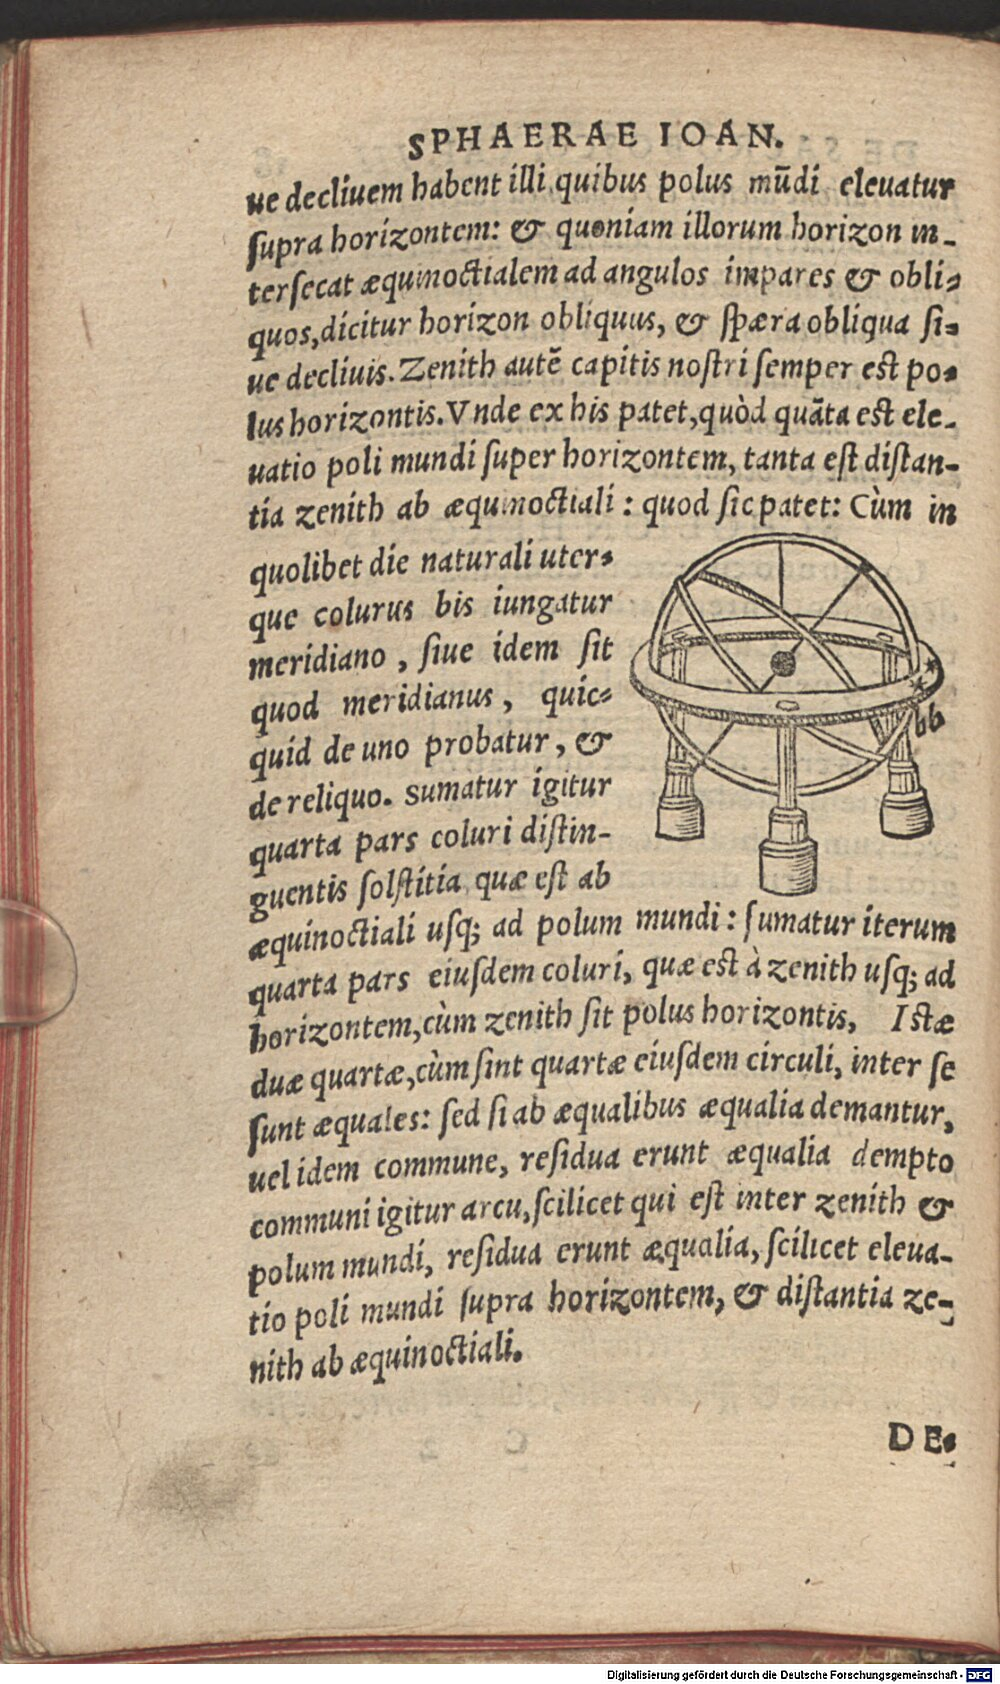 SPHAERAE IOAN.
ue decliuem habent illi, quibus polus mūdi eleuatur
ſupra horizontem: & quoniam illorum horizon in-
terſecat æquinoctialem ad angulos impares & obli-
quos, dicitur horizon obliquus, & ſpæra obliqua ſi-
ue decliuis. Zenith autē capitis noſtri ſemper eſt po-
lus horizontis. Vnde ex his patet, quòd quāta eſt ele-
uatio poli mundi ſuper horizontem, tanta eſt diſtan-
tia zenith ab æquinoctiali: quod ſic patet: Cùm in
quolibet die naturali uter-
que colurus bis iungatur
meridiano, ſiue idem ſit
quod meridianus, quic-
quid de uno probatur, &
de reliquo. Sumatur igitur
quarta pars coluri diſtin-
guentis ſolſtitia, quæ eſt ab
æquinoctiali uſq; ad polum mundi: ſumatur iterum
quarta pars eiuſdem coluri, quæ eſt à zenith uſq; ad
horizontem, cùm zenith ſit polus horizontis, Iſtæ
duæ quartæ, cùm ſint quartæ eiuſdem circuli, inter ſe
ſunt æquales: ſed ſi ab æqualibus æqualia demantur,
uel idem commune, reſidua erunt æqualia dempto
communi igitur arcu, ſcilicet qui eſt inter zenith &
polum mundi, reſidua erunt æqualia, ſcilicet eleua-
tio poli mundi ſupra horizontem, & diſtantia ze-
nith ab æquinoctiali.
DE-
Digitalisierung gefördert durch die Deutsche Forschungsgemeinschaft - DFG